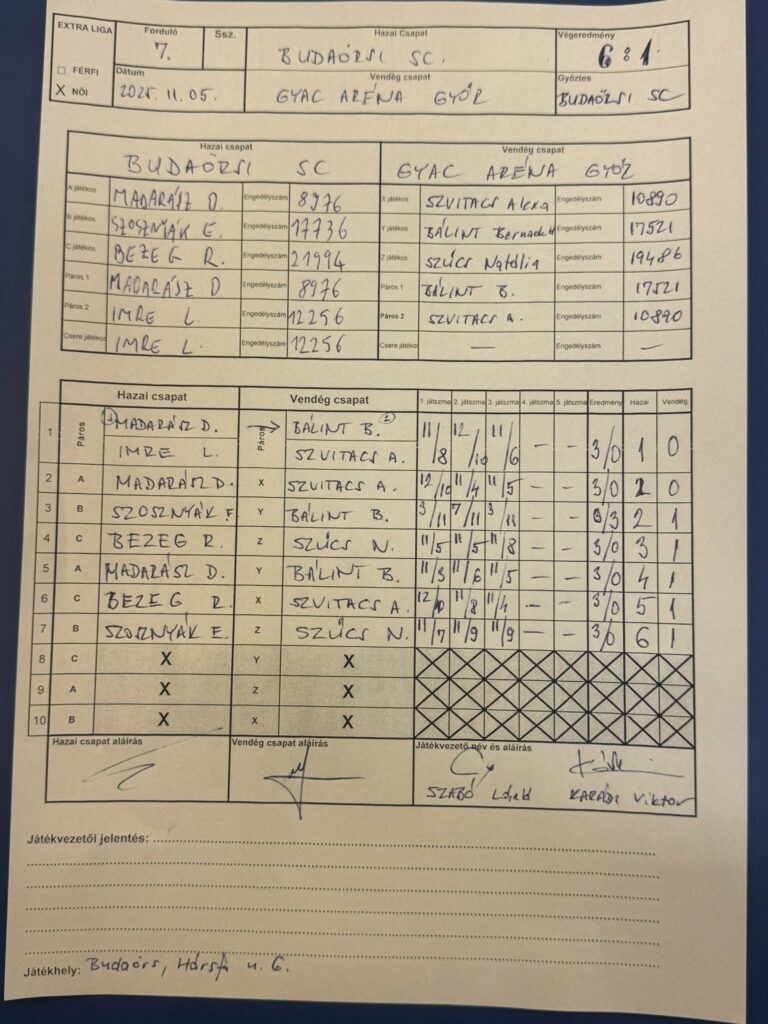 EXTRA LIGA Forduló Ssz. Hazai Csapat Végeredmény
7. BUDAÖRSI SC. 6:1
□ FÉRFI Dátum Vendég csapat Győztes
X NŐI 2025.11.05. GYAC ARÉNA GYŐR BUDAÖRSI SC
Hazai csapat Vendég csapat
BUDAÖRSI SC GYAC ARÉNA GYŐR
A játékos MADARÁSZ D. Engedélyszám 8976 X játékos SZVITACS Alexa Engedélyszám 10890
B játékos SZOSZNYÁK E. Engedélyszám 17736 Y játékos BÁLINT Bernadett Engedélyszám 17521
C játékos BEZEG R. Engedélyszám 21994 Z játékos SZŰCS Natália Engedélyszám 19486
Páros 1 MADARÁSZ D Engedélyszám 8976 Páros 1 BÁLINT B. Engedélyszám 17521
Páros 2 IMRE L. Engedélyszám 12256 Páros 2 SZVITACS A. Engedélyszám 10890
Csere játékos IMRE L. Engedélyszám 12256 Csere játékos — Engedélyszám —
Hazai csapat Vendég csapat 1. játszma 2. játszma 3. játszma 4. játszma 5. játszma Eredmény Hazai Vendég
1 Páros MADARÁSZ D. Páros → BÁLINT B. 11/8 12/10 11/6 — — 3/0 1 0
IMRE L. SZVITACS A.
2 A MADARÁSZ D. X SZVITACS A. 12/10 11/4 11/5 — — 3/0 2 0
3 B SZOSZNYÁK E. Y BÁLINT B. 3/11 7/11 3/11 — — 0/3 2 1
4 C BEZEG R. Z SZŰCS N. 11/5 11/5 11/8 — — 3/0 3 1
5 A MADARÁSZ D. Y BÁLINT B. 11/3 11/6 11/5 — — 3/0 4 1
6 C BEZEG R. X SZVITACS A. 12/10 11/8 11/4 — — 3/0 5 1
7 B SZOSZNYÁK E. Z SZŰCS N. 11/7 11/9 11/9 — — 3/0 6 1
8 C X Y X
9 A X Z X
10 B X X X
Hazai csapat aláírás Vendég csapat aláírás Játékvezető név és aláírás
SZABÓ KARÁDI Viktor
Játékvezetői jelentés:
Játékhely: Budaörs, Hársfa u. 6.